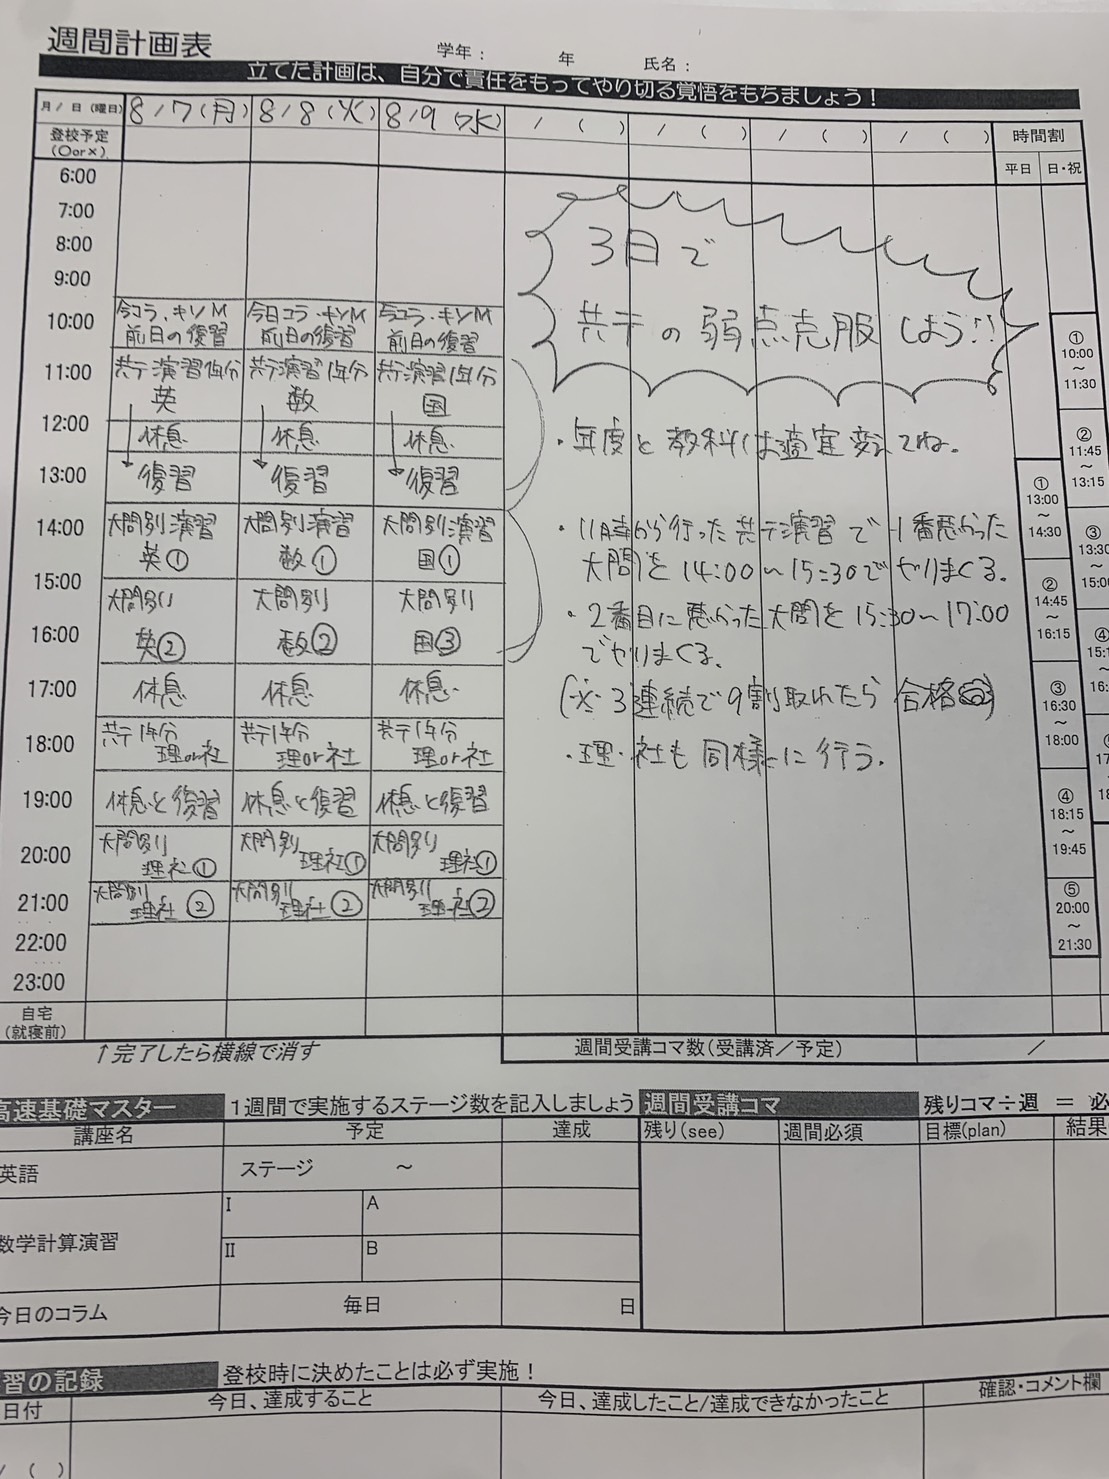 週間計画表
学年： 年 氏名：
立てた計画は、自分で責任をもってやり切る覚悟をもちましょう！
月/日（曜日） 8/7（月） 8/8（火） 8/9（水） /（ ） /（ ） /（ ） /（ ） 時間割
登校予定
（Oor×）
平日 日・祝
6:00
7:00
8:00
9:00
10:00
11:00
12:00
13:00
14:00
15:00
16:00
17:00
18:00
19:00
20:00
21:00
22:00
23:00
自宅
（就寝前）
今コラ、キソM
前日の復習
共テ演習1年分
英
休息
復習
大問別演習
英①
大問別
英②
休息
共テ1年分
理or社
休息と復習
大問別
理社①
大問別
理社②
今日コラ・キソM
前日の復習
共テ演習1年分
数
休息
復習
大問別演習
数①
大問別
数②
休息
共テ1年分
理or社
休息と復習
大問別
理社①
大問別
理社②
今コラ・キソM
前日の復習
共テ演習1年分
国
休息
復習
大問別演習
国①
大問別
国③
休息
共テ1年分
理or社
休息と復習
大問別
理社①
大問別
理・社②
3日で
共テの弱点克服しよう!!
・年度と教科は適宜変えてね。
・11時から行った共テ演習で一番悪かった
大問を14:00～15:30でやりまくる。
・2番目に悪かった大問を15:30～17:00
でやりまくる。
(※3連続で9割取れたら合格)
・理・社も同様に行う。
①
13:00
～
14:30
②
14:45
～
16:15
③
16:30
～
18:00
④
18:15
～
19:45
⑤
20:00
～
21:30
①
10:00
～
11:30
②
11:45
～
13:15
③
13:30
～
15:00
④
↑完了したら横線で消す
週間受講コマ数（受講済／予定） ／
高速基礎マスター 1週間で実施するステージ数を記入しましょう
講座名 予定 達成
英語 ステージ ～
数学計算演習 I A
II B
今日のコラム 毎日 日
週間受講コマ 残りコマ÷週 ＝ 必
残り(see) 週間必須 目標(plan) 結果
習の記録 登校時に決めたことは必ず実施！
日付 今日、達成すること 今日、達成したこと/達成できなかったこと 確認・コメント欄
/ ( )